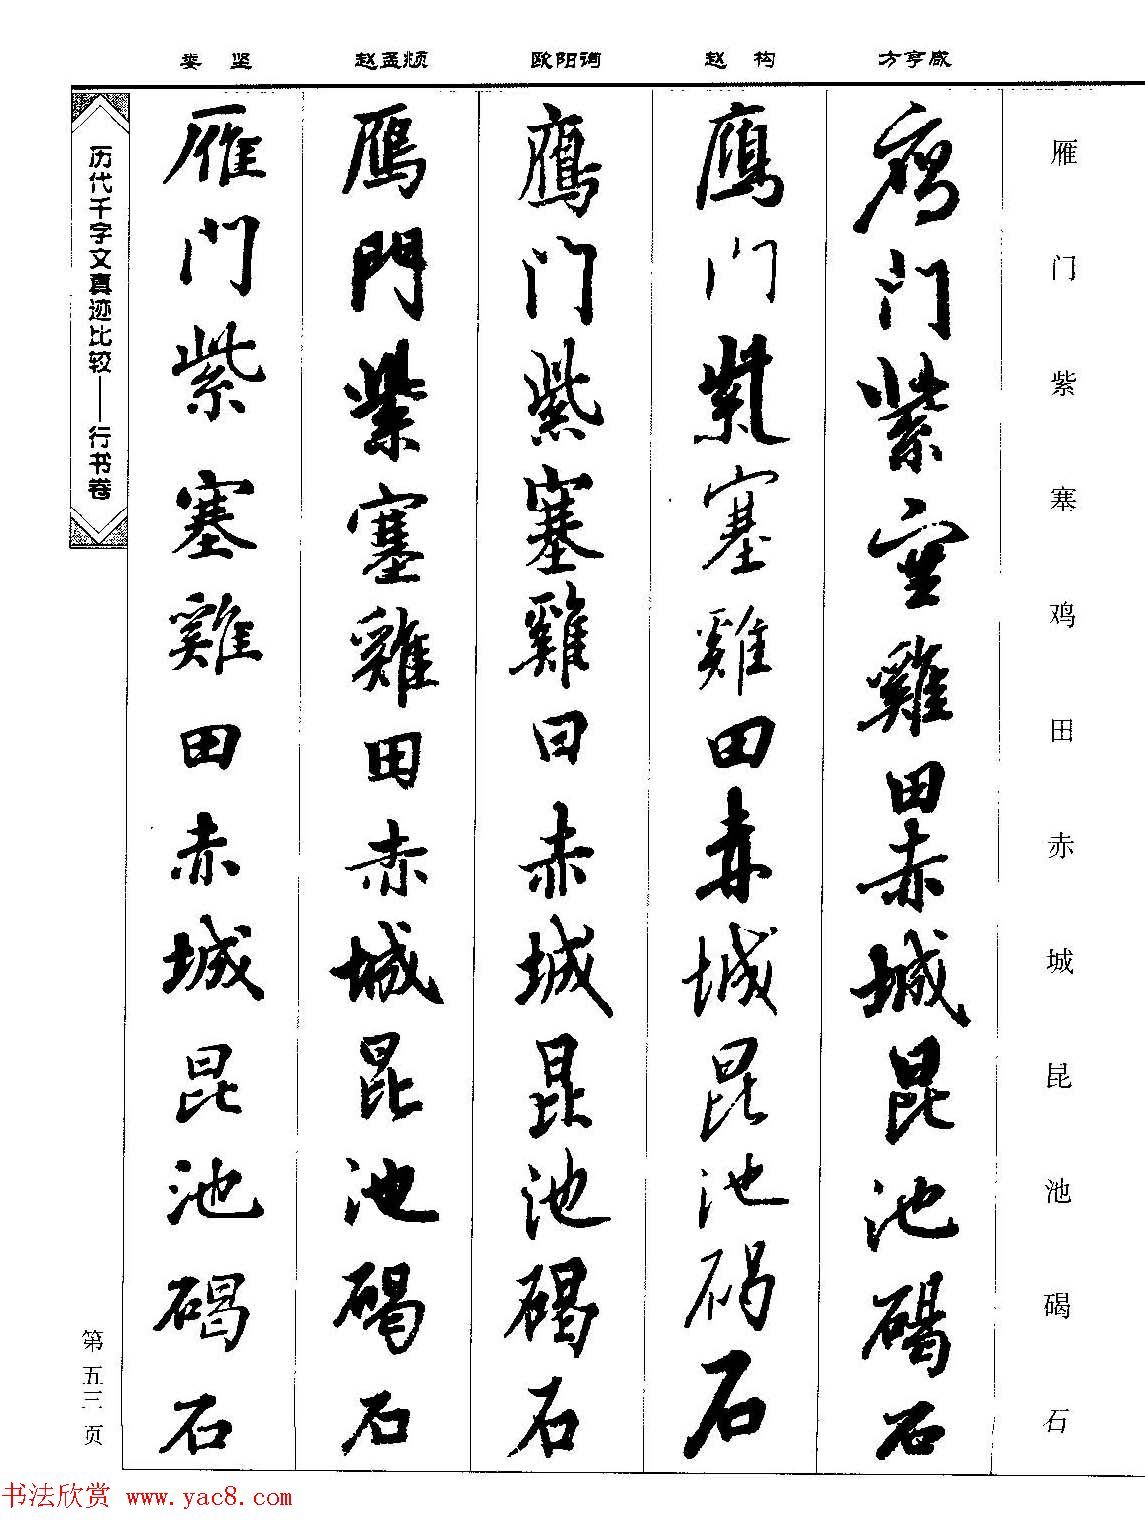 雁门紫塞鸡田赤城昆池碣石
方亨咸
鴈门紫塞雞田赤城昆池碣石
赵构
鴈门紫塞雞田赤城昆池碣石
欧阳询
鴈门紫塞雞田赤城昆池碣石
赵孟頫
鴈門紫塞雞田赤城昆池碣石
娄坚
雁门紫塞雞田赤城昆池碣石
历代千字文真迹比较——行书卷
第五三页
书法欣赏 www.yac8.com